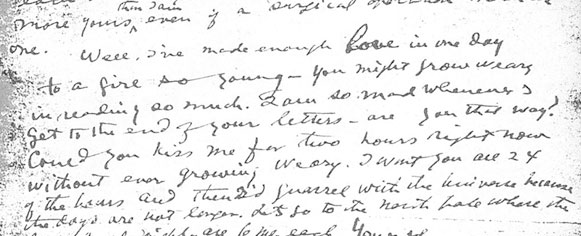 than I am
more yours, even if a surgical operation
one. Well, I've made enough love in one day
to a girl so young — you might grow weary
in reading so much. I am so mad whenever I
get to the end of your letters — are you that way?
Could you kiss me for two hours right now
without ever growing weary. I want you all 24
of the hours and then I'd quarrel with the universe because
the days are not longer. Let's go to the north pole where the
are 6 mo. each Yours